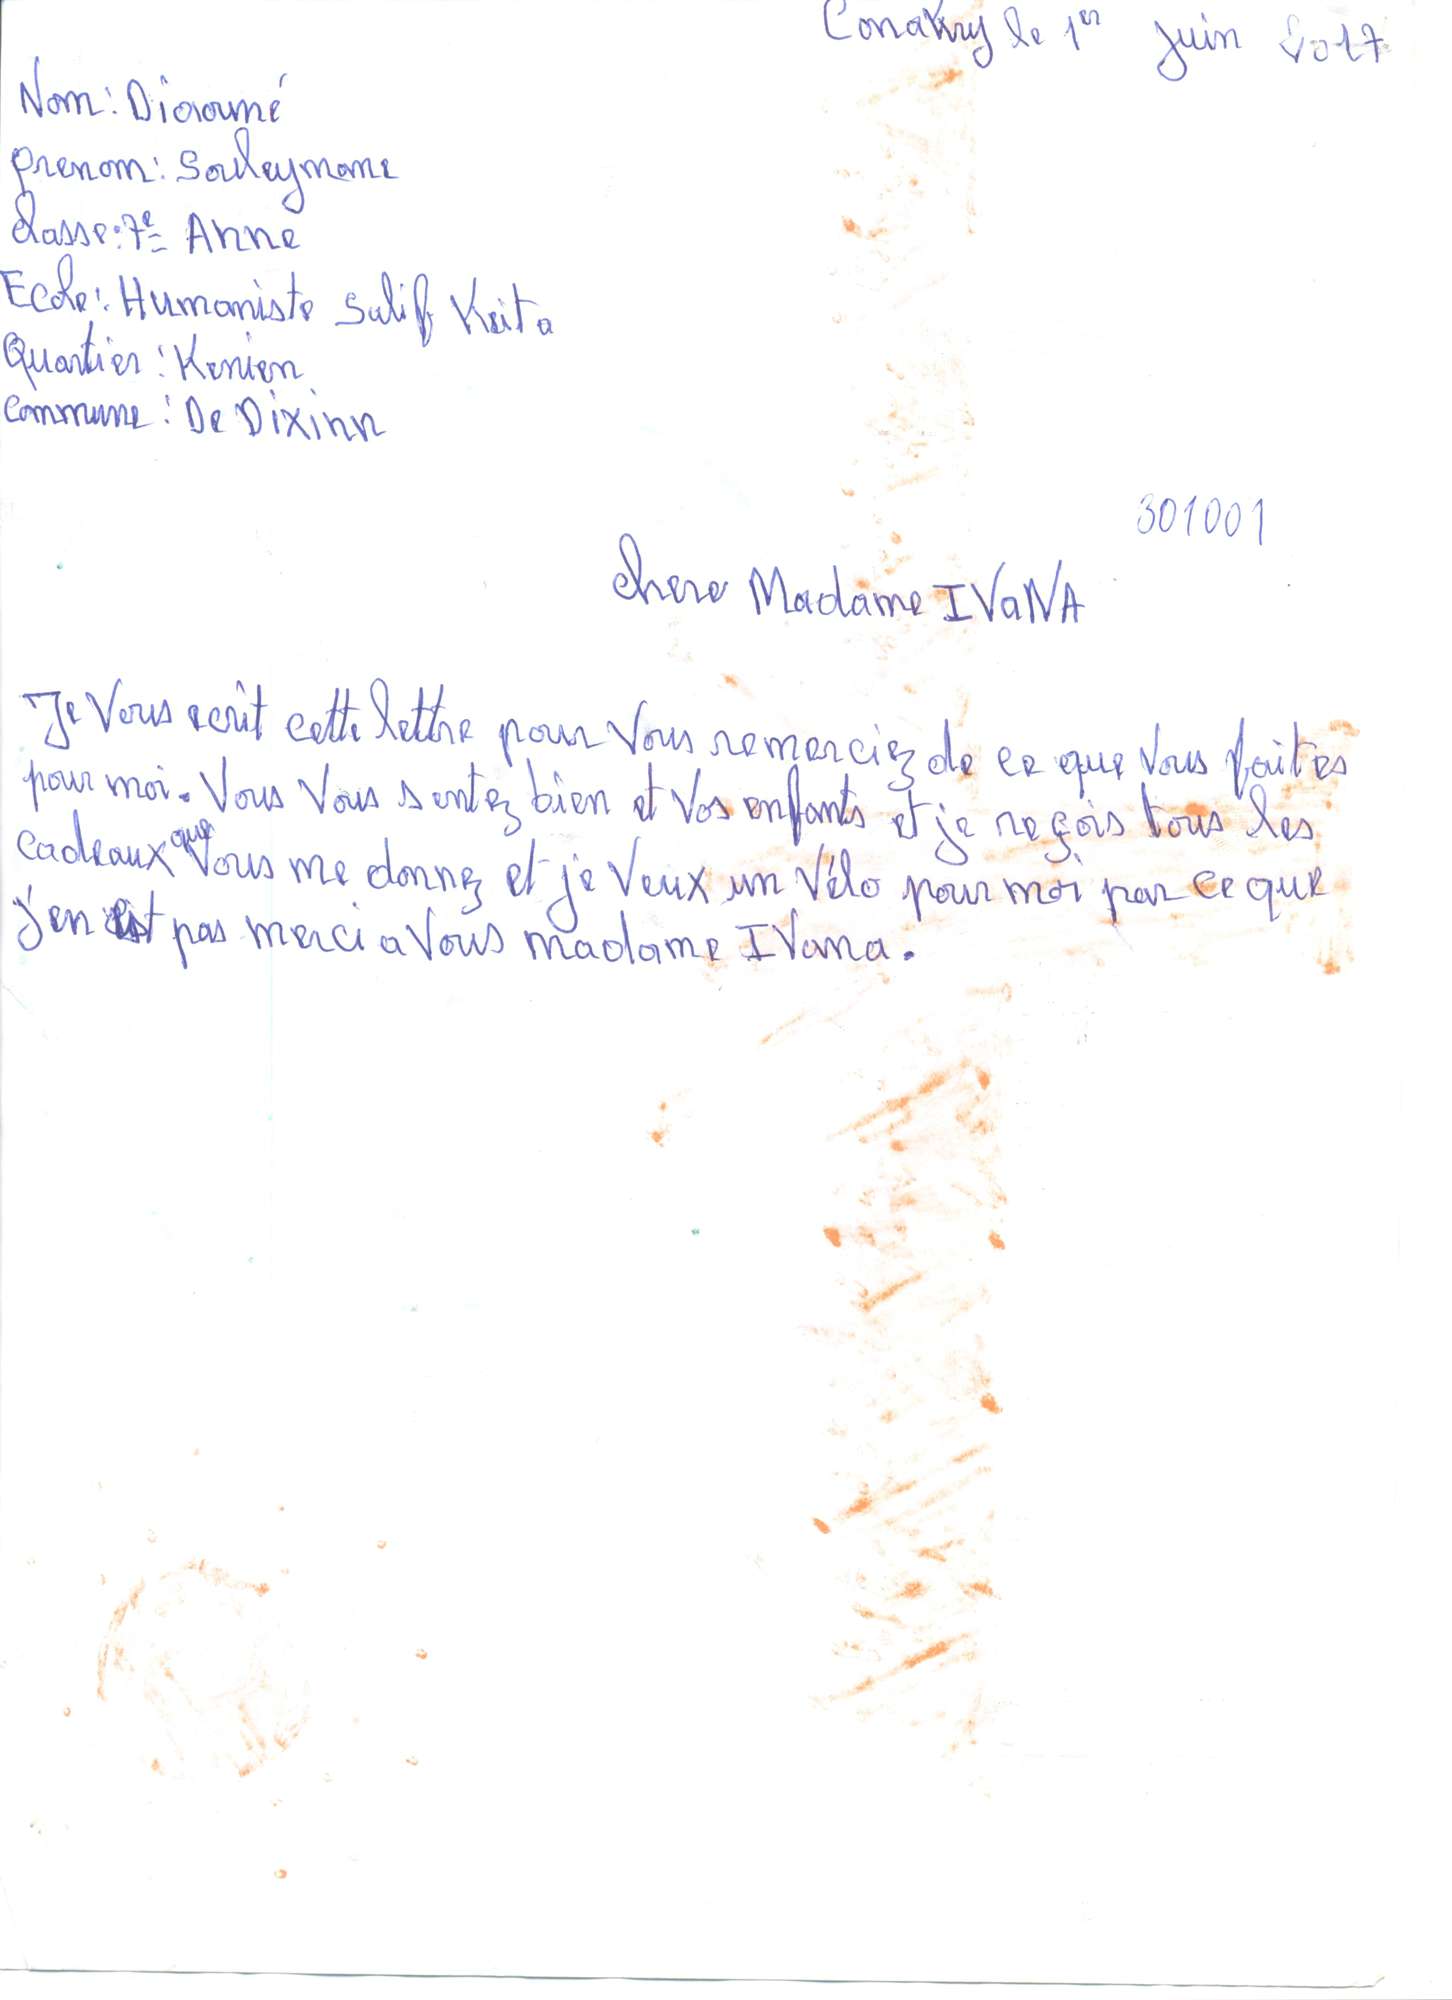 Conakry le 1er juin 2017
Nom: Diaoumé
prenom: Souleymane
classe: 7e Anne
Ecole: Humaniste Salif Keita
Quartier: Kenien
commune: De Dixinn
301001
chere Madame IVaNA
Je Vous ecrit cette lettre pour Vous remerciez de ce que Vous faites
pour moi. Vous Vous sentez bien et Vos enfants et je reçois tous les
cadeaux que Vous me donnez et je Veux un Vélo pour moi par ce que
j'en est pas merci a Vous madame IVana.